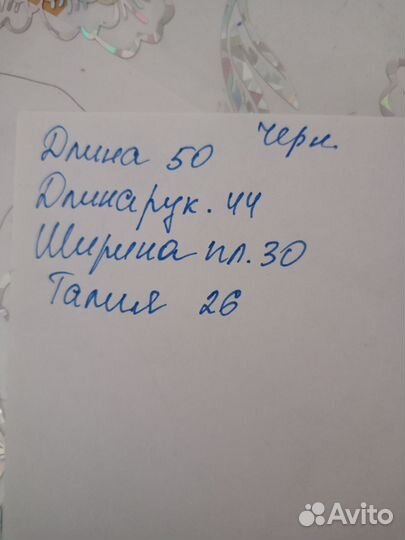 Черн.
Длина 50
Длина рук. 44
Ширина пл. 30
Талия 26
Avito